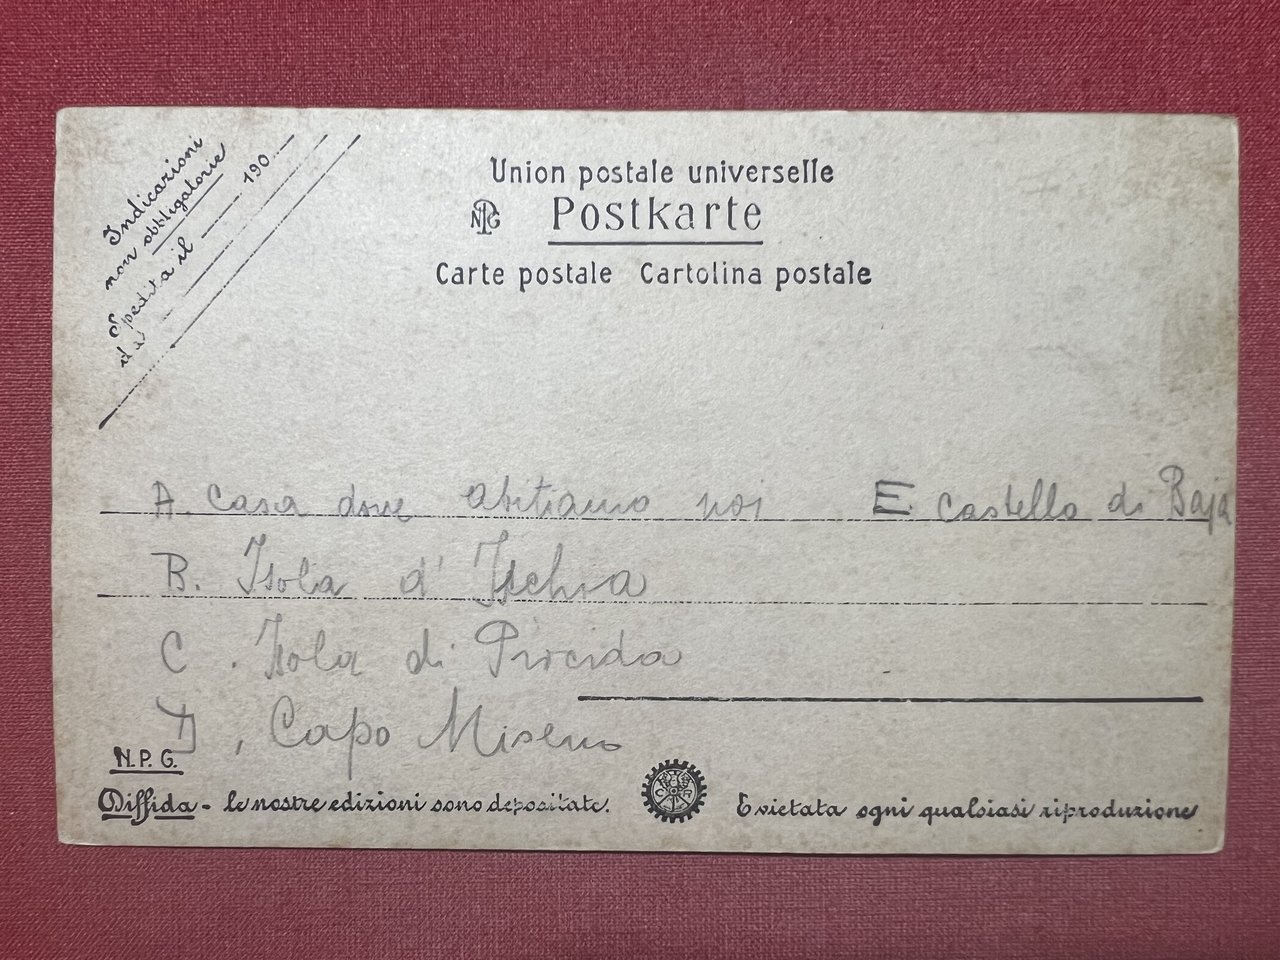 Indicazioni
non obbligatorie
Spedita il 190
da
Union postale universelle
NPG Postkarte
Carte postale Cartolina postale
A. Casa dove abitiamo noi E. Castello di Baja
B. Isola d' Ischia
C. Isola di Procida
D, Capo Miseno
N.P.G.
Diffida - le nostre edizioni sono depositate. E vietata ogni qualsiasi riproduzione